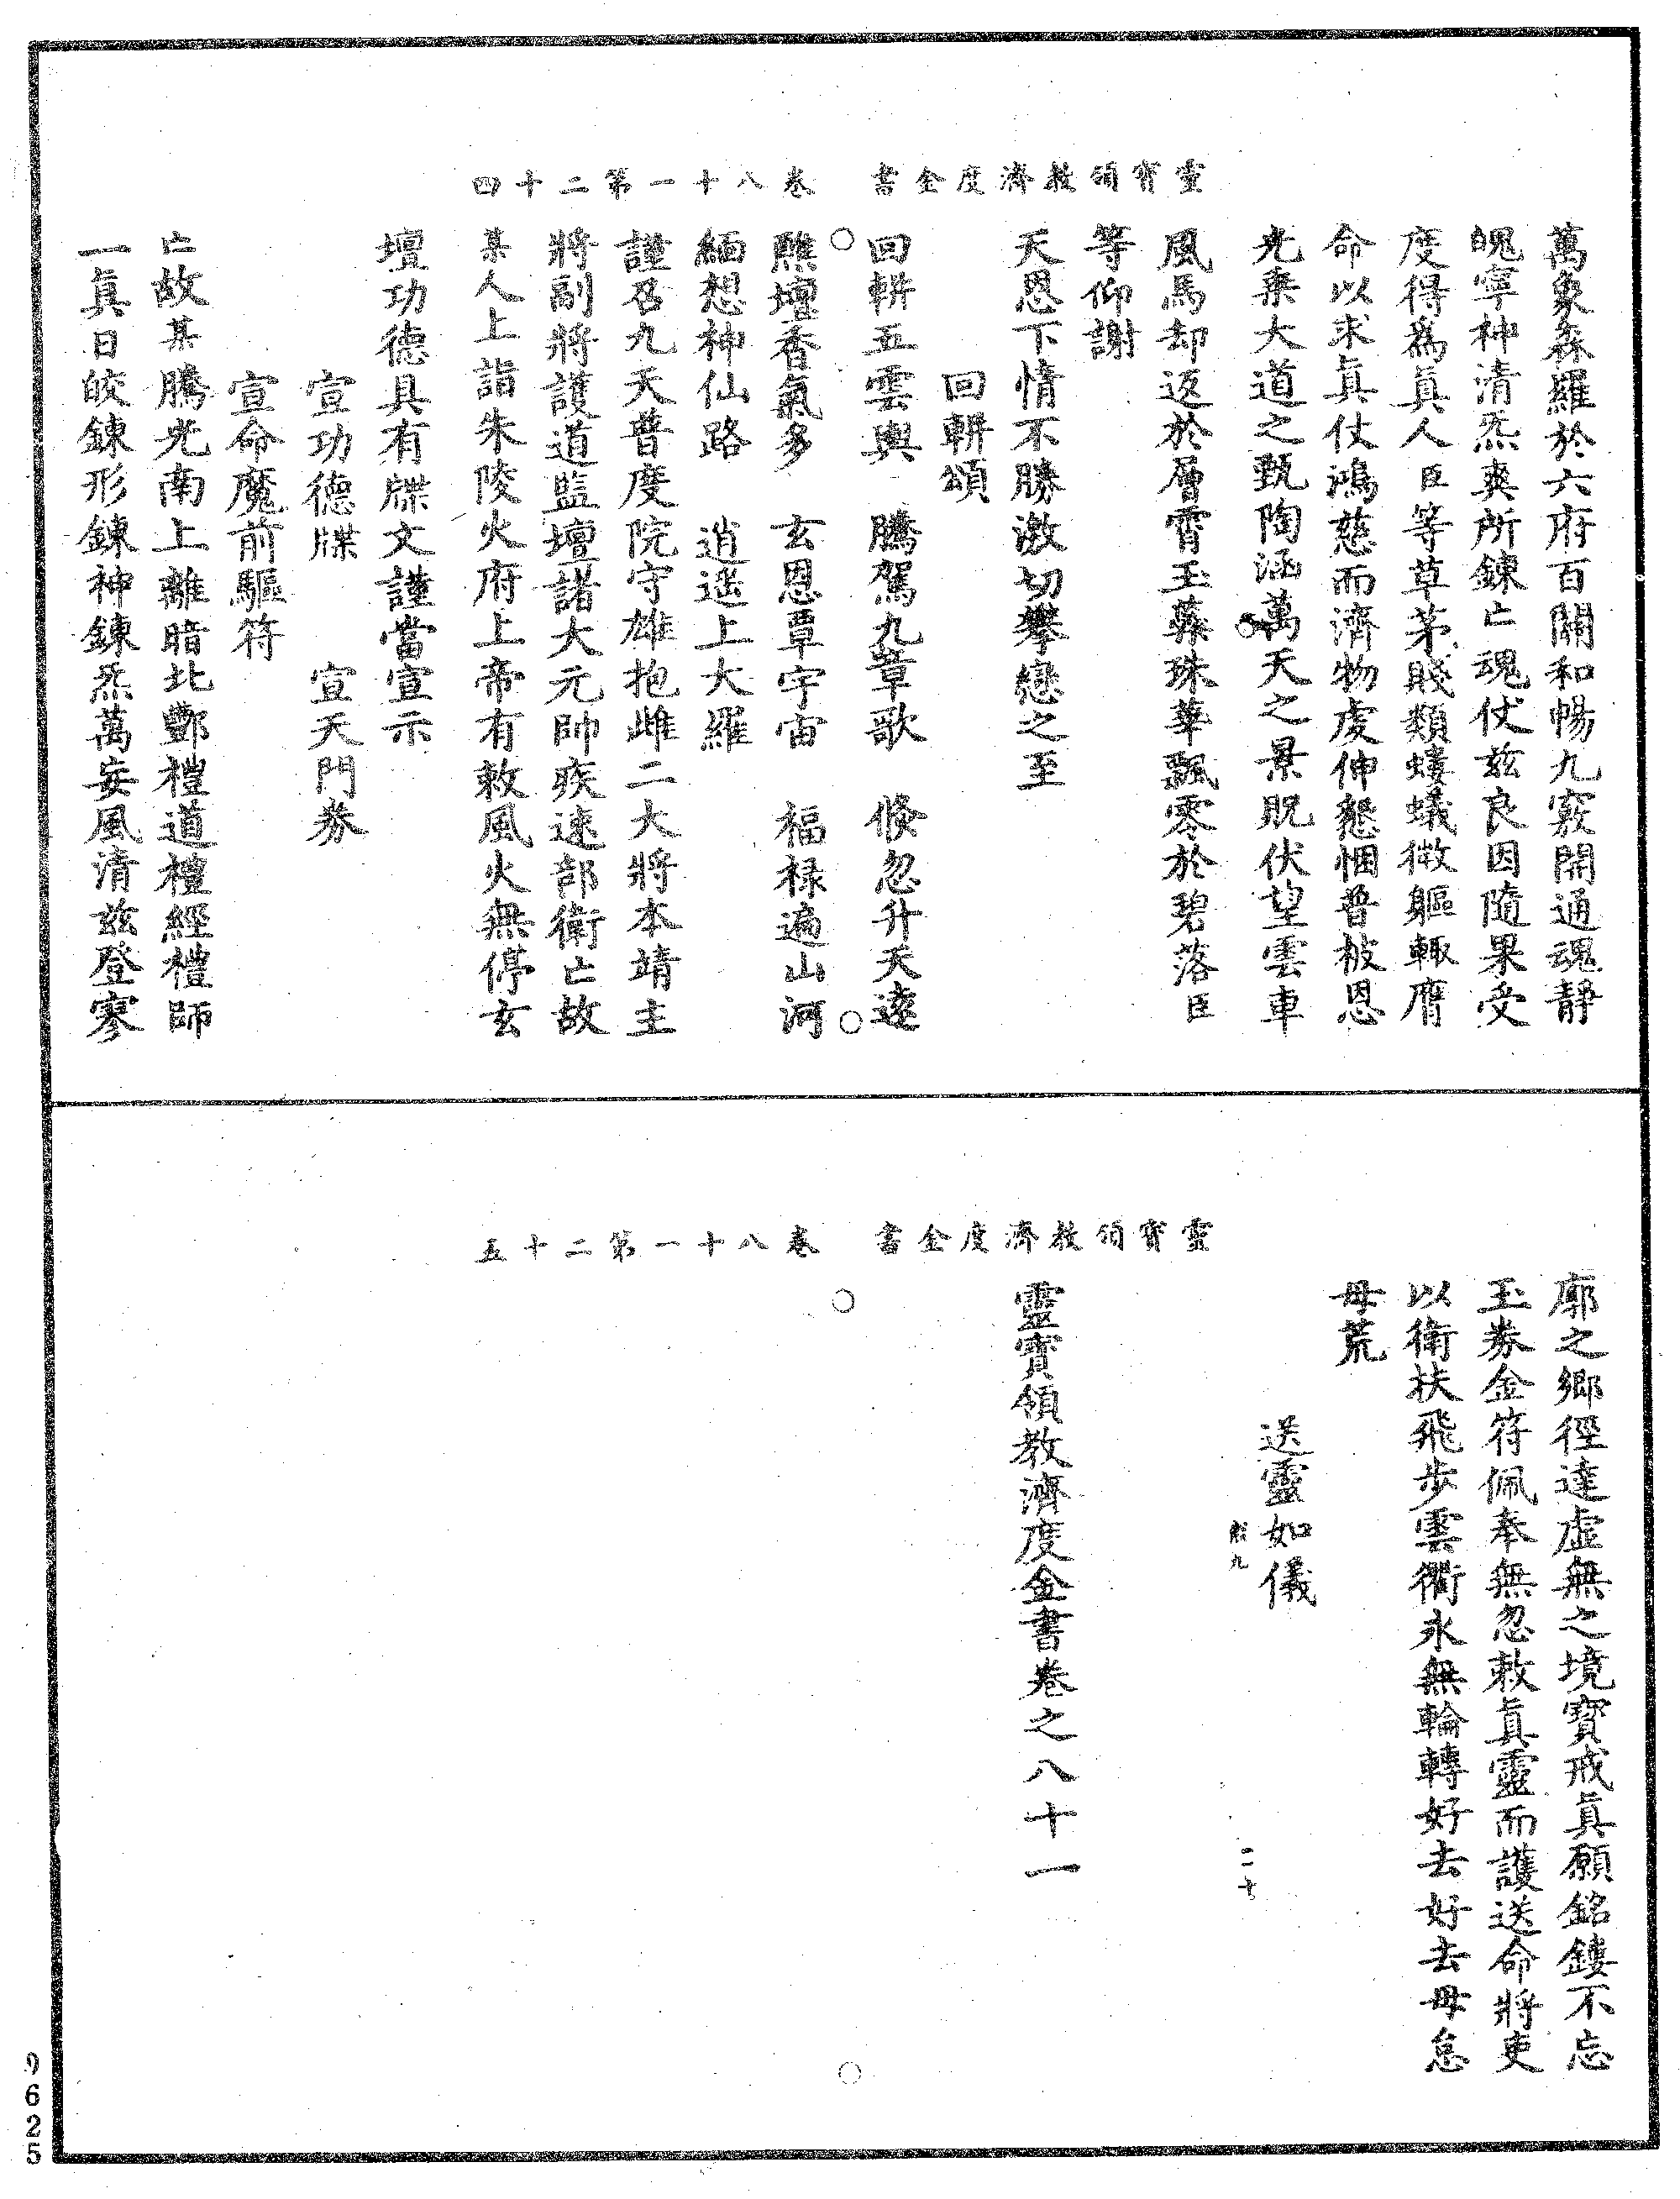 靈寶領教濟度金書　卷八十一第二十四
萬象森羅於六府百關和暢九竅開通魂靜
魄寧神清炁爽所鍊亡魂仗兹良因隨果受
度得為眞人臣等草茅賤類螻蟻微軀輙膺
命以求眞仗鴻慈而濟物虔伸懇悃普被恩
光乗大道之甄陶涵萬天之景貺伏望雲車
風馬却返於層霄玉蘂珠華飄零於碧落臣
等仰謝
天恩下情不勝激切攀戀之至
回軿頌
回軿五雲輿　騰駕九章歌　倐忽升天逵
醮壇香氣多　玄恩覃宇宙　福禄遍山河
緬想神仙路　逍遥上大羅
謹召九天普度院守雄抱雌二大將本靖主
將副將護道監壇諸大元帥疾速部衛亡故
某人上詣朱陵火府上帝有敕風火無停玄
壇功德具有牒文謹當宣示
宣功德牒　宣天門券
宣命魔前驅符
亡故某騰光南上離暗北酆禮道禮經禮師
一眞日皎鍊形鍊神鍊炁萬妄風清兹登寥
靈寶領教濟度金書　卷八十一第二十五
廓之鄉徑達虚無之境寶戒眞願銘鏤不忘
玉券金符佩奉無忽敕眞靈而護送命將吏
以衛扶飛步雲衢永無輪轉好去好去毋怠
毋荒
送靈如儀
九
二十
靈寶領教濟度金書卷之八十一
9625